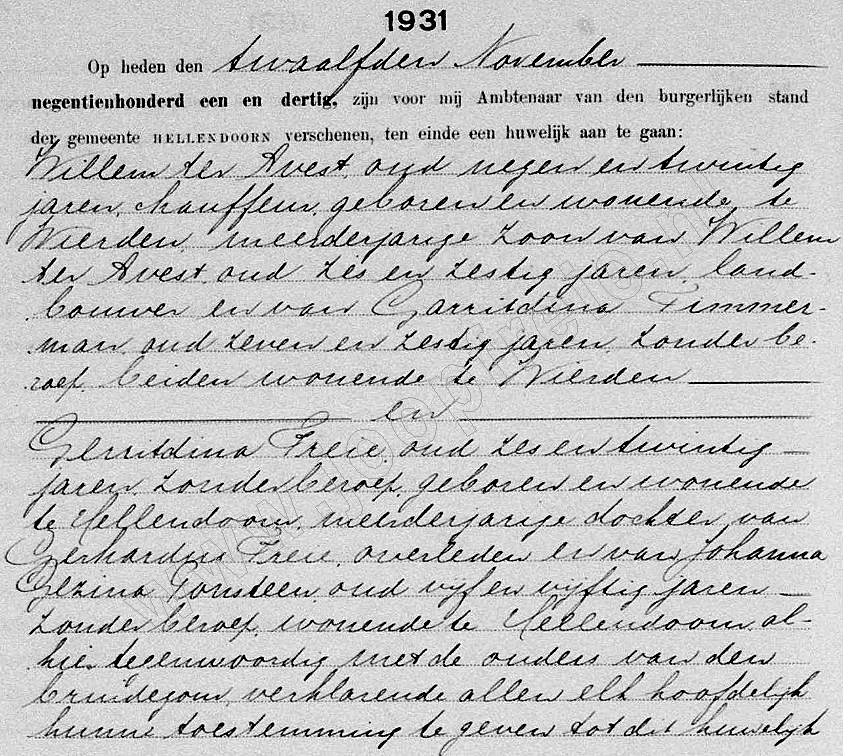 1931
Op heden den twaalfden November
negentienhonderd een en dertig, zijn voor mij Ambtenaar van den burgerlijken stand
der gemeente HELLENDOORN verschenen, ten einde een huwelijk aan te gaan:
Willem ter Avest, oud negen en twintig
jaren, chauffeur, geboren en wonende te
Wierden, meerderjarige zoon van Willem
ter Avest, oud zes en zestig jaren, land-
bouwer en van Garritdina Timmer-
man, oud zeven en zestig jaren, zonder be-
roep, beiden wonende te Wierden
en
Gerritdina Freie, oud zes en twintig
jaren, zonder beroep, geboren en wonende
te Hellendoorn, meerderjarige dochter van
Gerhardus Freie, overleden en van Johanna
Gezina Ponsteen, oud vijf en vijftig jaren
zonder beroep, wonende te Hellendoorn, al-
hier tegenwoordig met de ouders van den
bruidegom, verklarende allen elk hoofdelijk
hunne toestemming te geven tot dit huwelijk